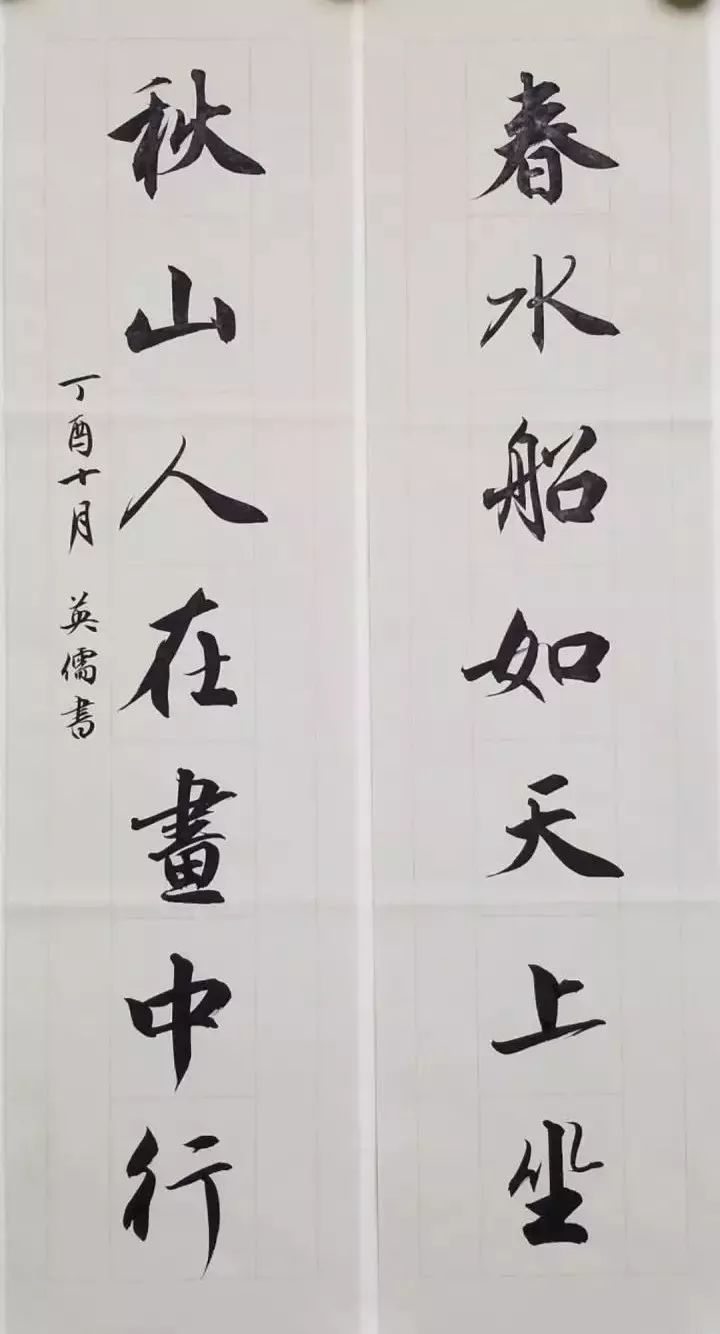 春水船如天上坐
秋山人在畫中行
丁酉十月 英儒書